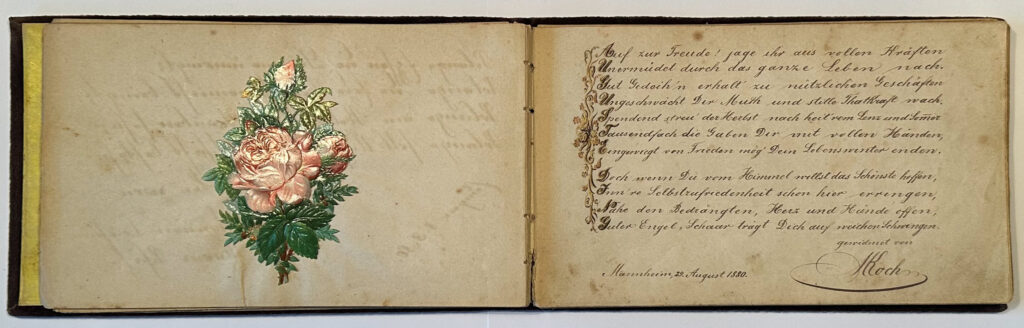 Auf zur Freude! jage ihr aus vollen Kräften
Unermüdet durch das ganze Leben nach.
Gut Gedeih'n erhalt zu nützlichen Geschäften
Ungeschwächt Dir Muth und stille Thatkraft wach.
Spendend streu' der Herbst nach heit'rem Lenz und Som̅er
Tausendfach die Gaben Dir mit vollen Händen,
Eingewiegt von Frieden mög' Dein Lebenswinter enden.
Doch wenn Du vom Himmel willst das Schönste hoffen,
Inn're Selbstzufriedenheit schon hier erringen,
Nahe den Bedrängten, Herz und Hände offen,
Guter Engel, Schaar trägt Dich auf weichen Schwingen.
gewidmet von
Koch
Mannheim, 29. August 1880.